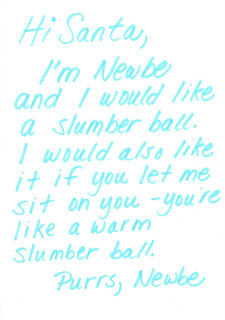 Hi Santa,
I'm Newbe
and I would like
a slumber ball.
I would also like
it if you let me
sit on you - you're
like a warm
slumber ball.
Purrs, Newbe